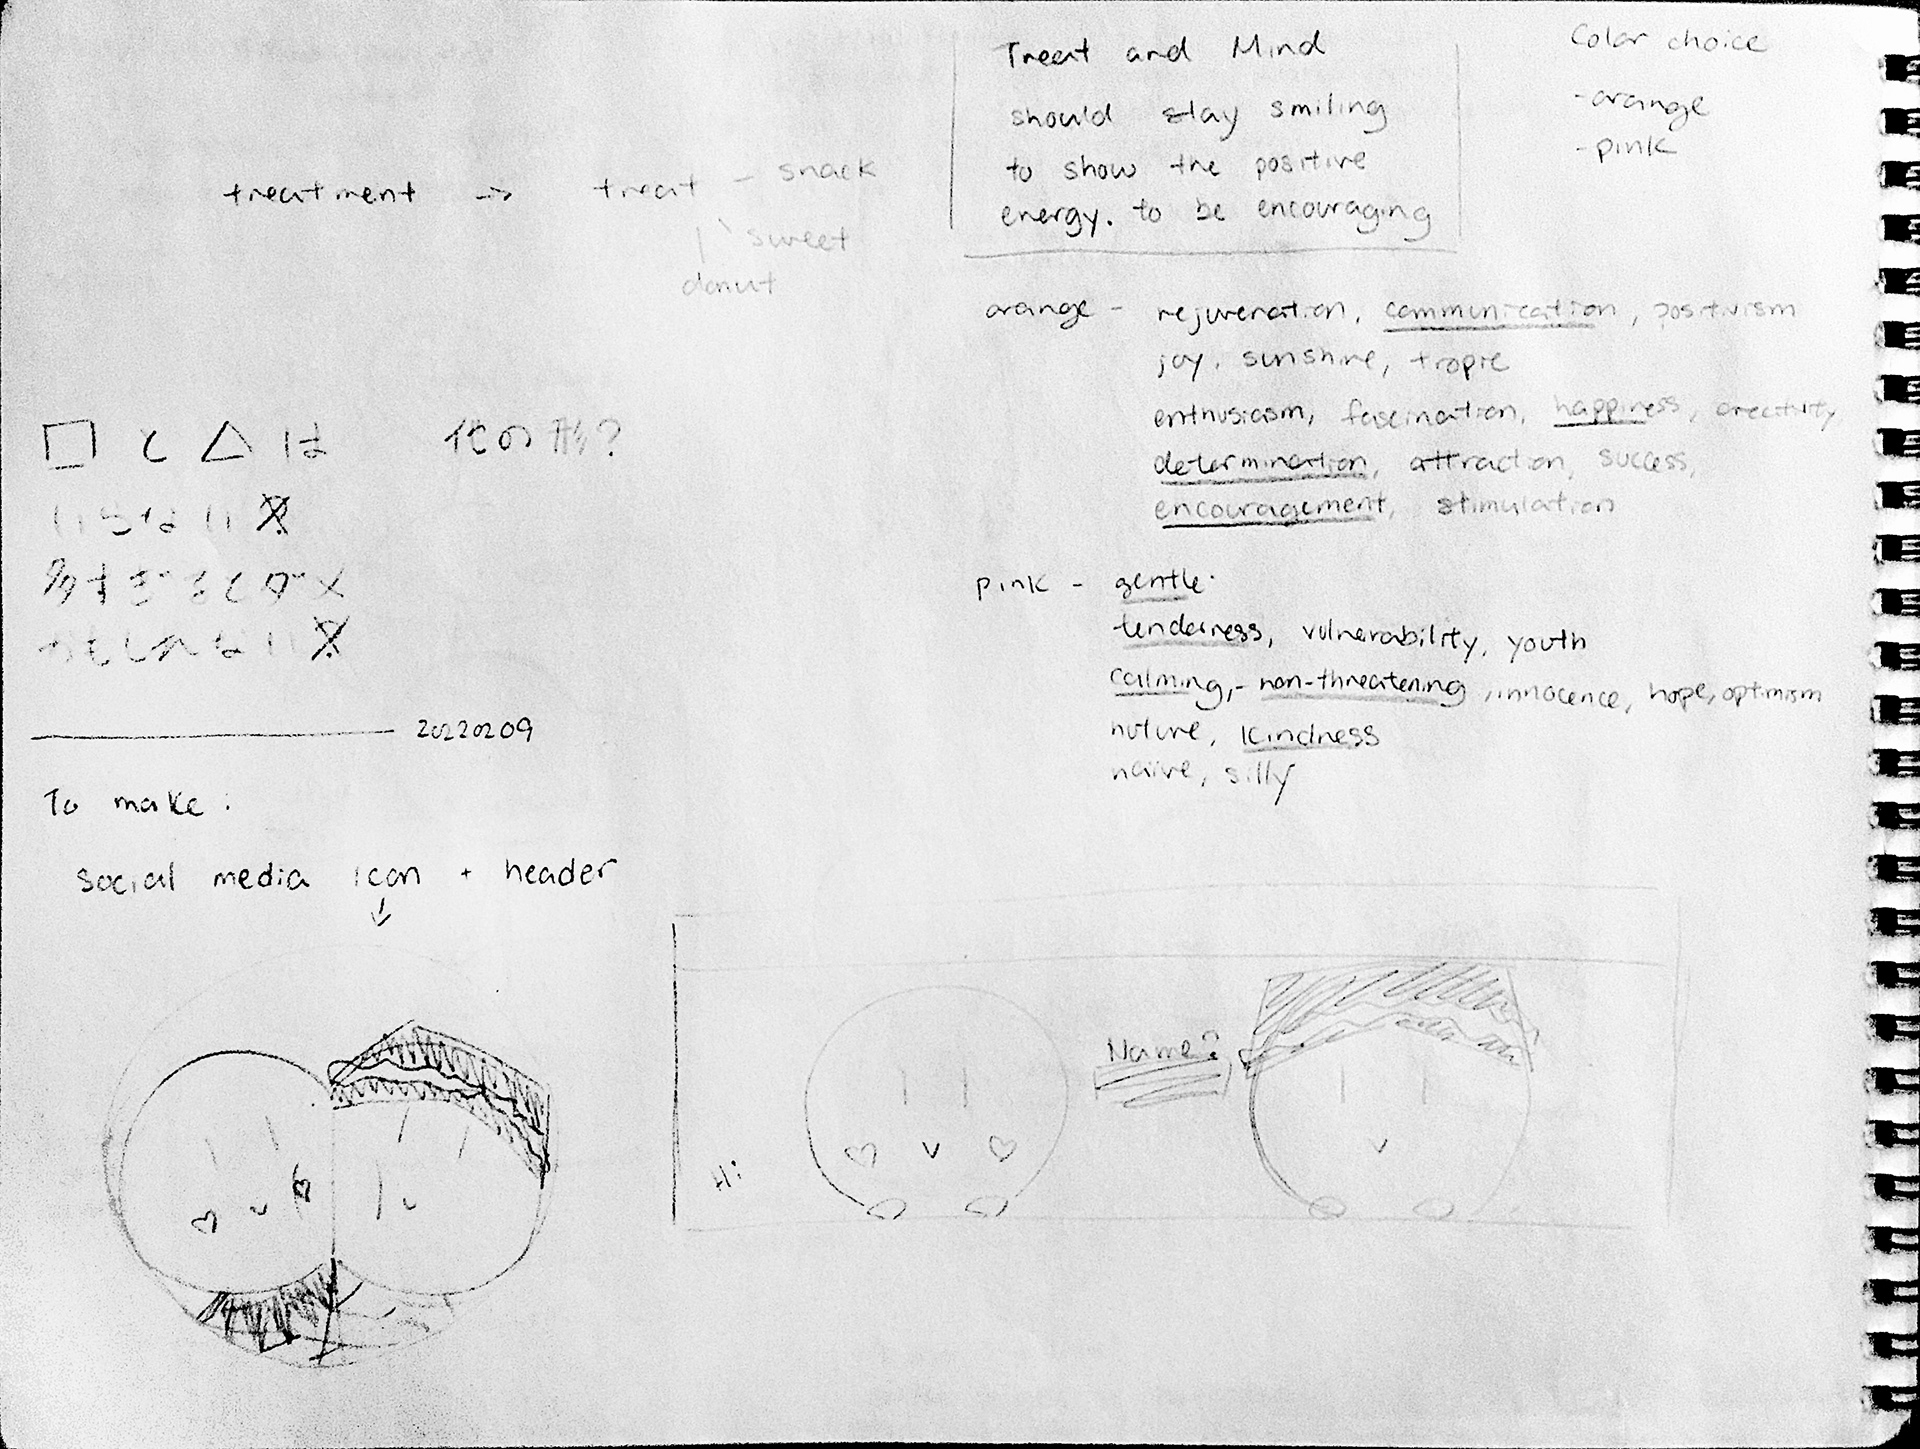 treatment -> treat - snack
sweet
donut
□ と △ は 他の形?
いらない
多すぎるとダメ
かもしれない
20220209
To make:
social media icon + header
↓
Treat and Mind
should stay smiling
to show the positive
energy. to be encouraging
Color choice
-orange
-pink
orange - rejuvenation, communication, positivism
joy. sunshine, tropic
enthusiasm, fascination, happiness, creativity
determination, attraction, success,
encouragement, stimulation
pink - gentle.
tenderness, vulnerability, youth
calming, - non-threatening, innocence, hope, optimism
nuture, kindness
naiive, silly
Name?
Hi